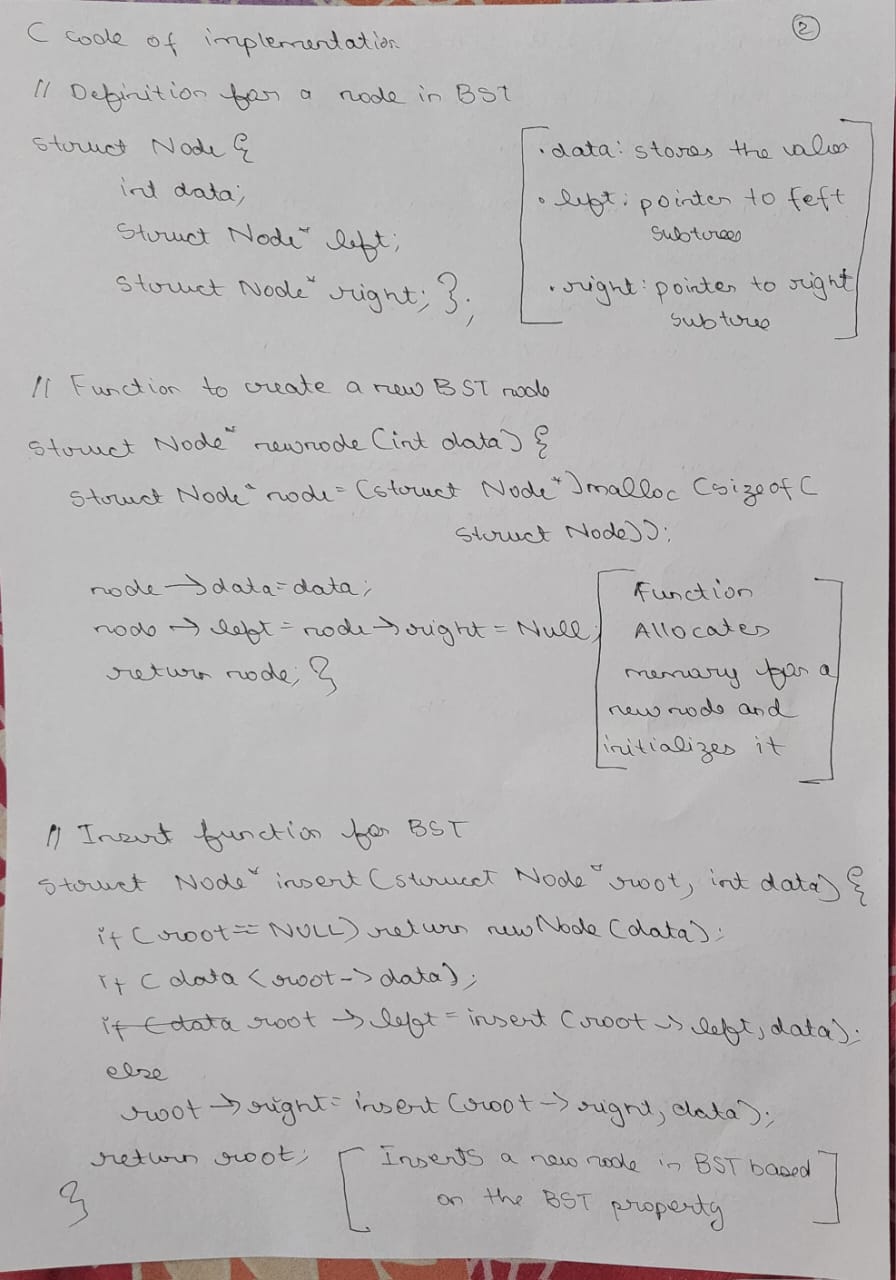 C code of implementation
②
// Definition for a node in BST
struct Node {
int data;
struct Node* left;
struct Node* right; };
• data: stores the value
• left: pointer to feft
subtree
• right: pointer to right
subtree
// Function to create a new BST node
struct Node* newnode (int data) {
struct Node* node = (struct Node*) malloc (sizeof (
struct Node));
node → data = data;
node → left = node → right = Null;
return node; }
Function
Allocates
memory for a
new node and
initializes it
// Insert function for BST
struct Node* insert (struct Node* root, int data) {
if (root == NULL) return newNode (data);
if (data < root -> data);
if (data root → left = insert (root → left, data);
else
root → right = insert (root -> right, data);
return root;
}
Inserts a new node in BST based
on the BST property